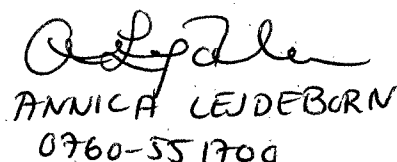 ANNICA LEJDEBORN
0760-551700